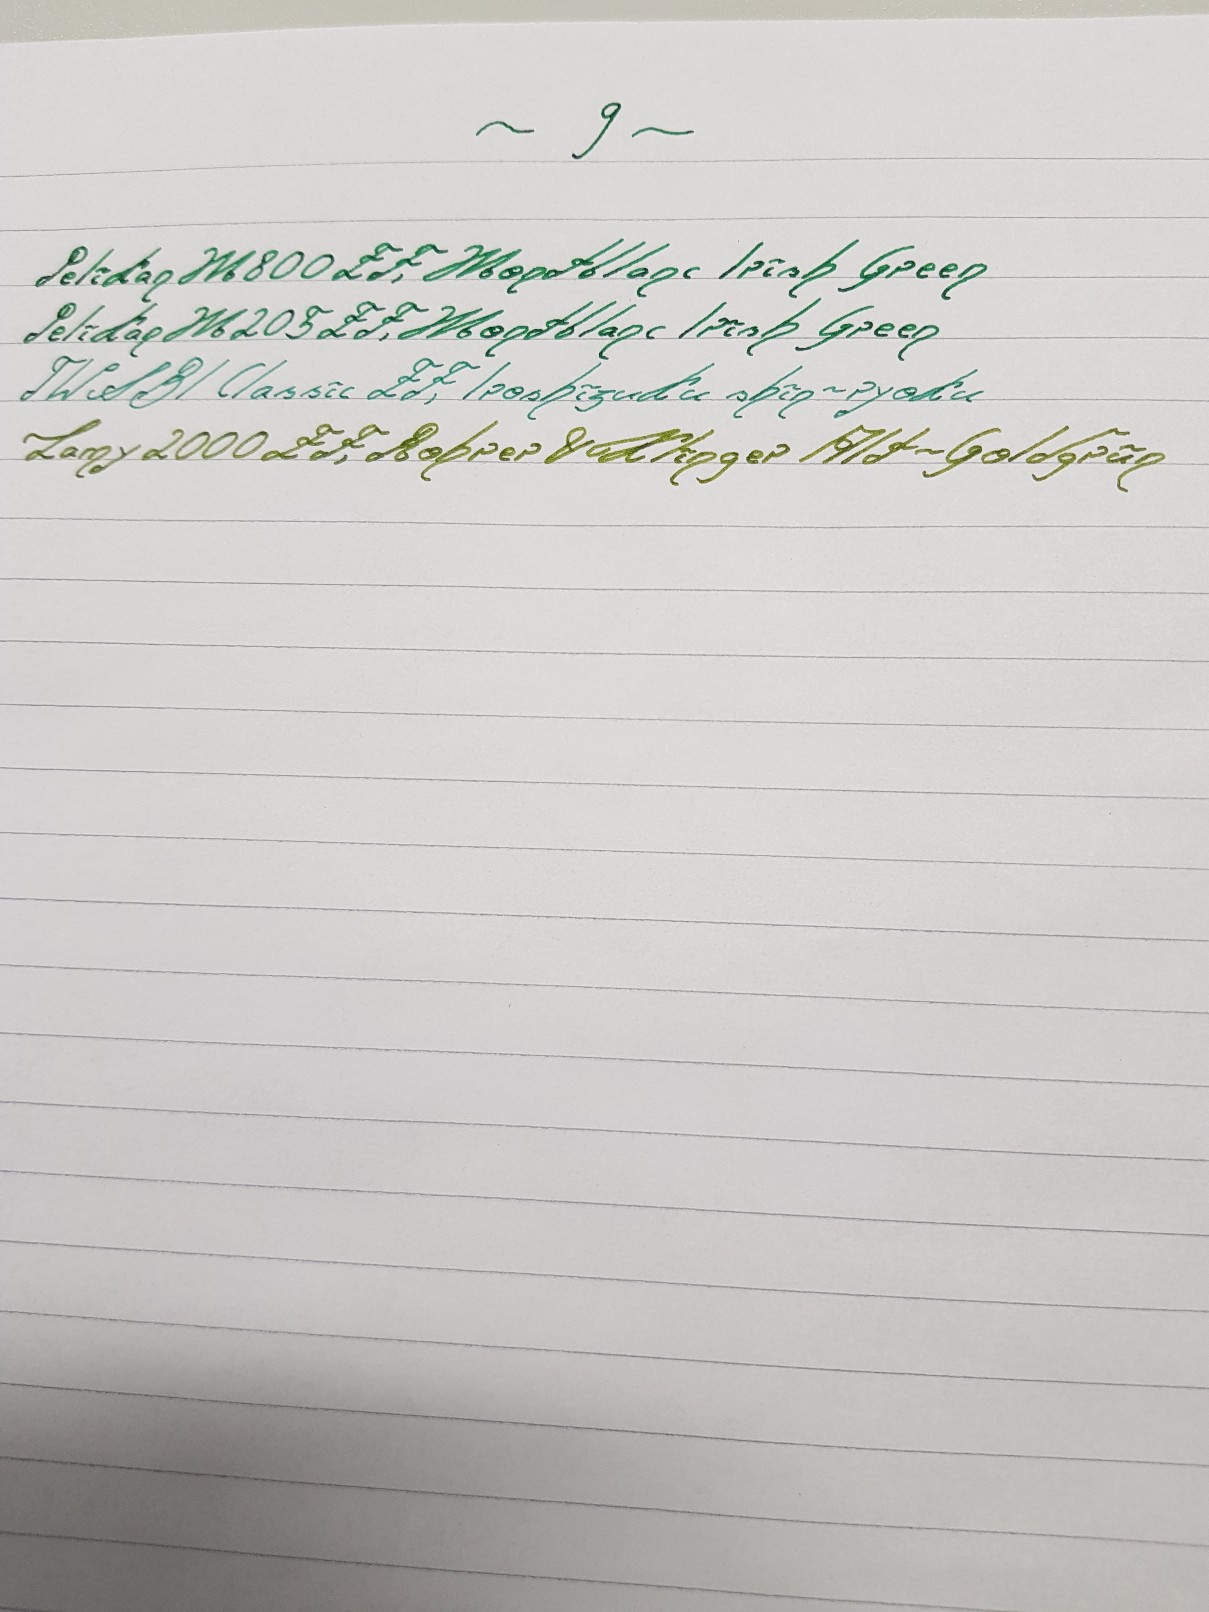 ~ 9 ~
Pelikan M800 EF, Montblanc Irish Green
Pelikan M205 EF, Montblanc Irish Green
TWSBI Classic EF, Iroshizuku shin-ryoku
Lamy 2000 EF, Rohrer & Klingner Alt-Goldgrün